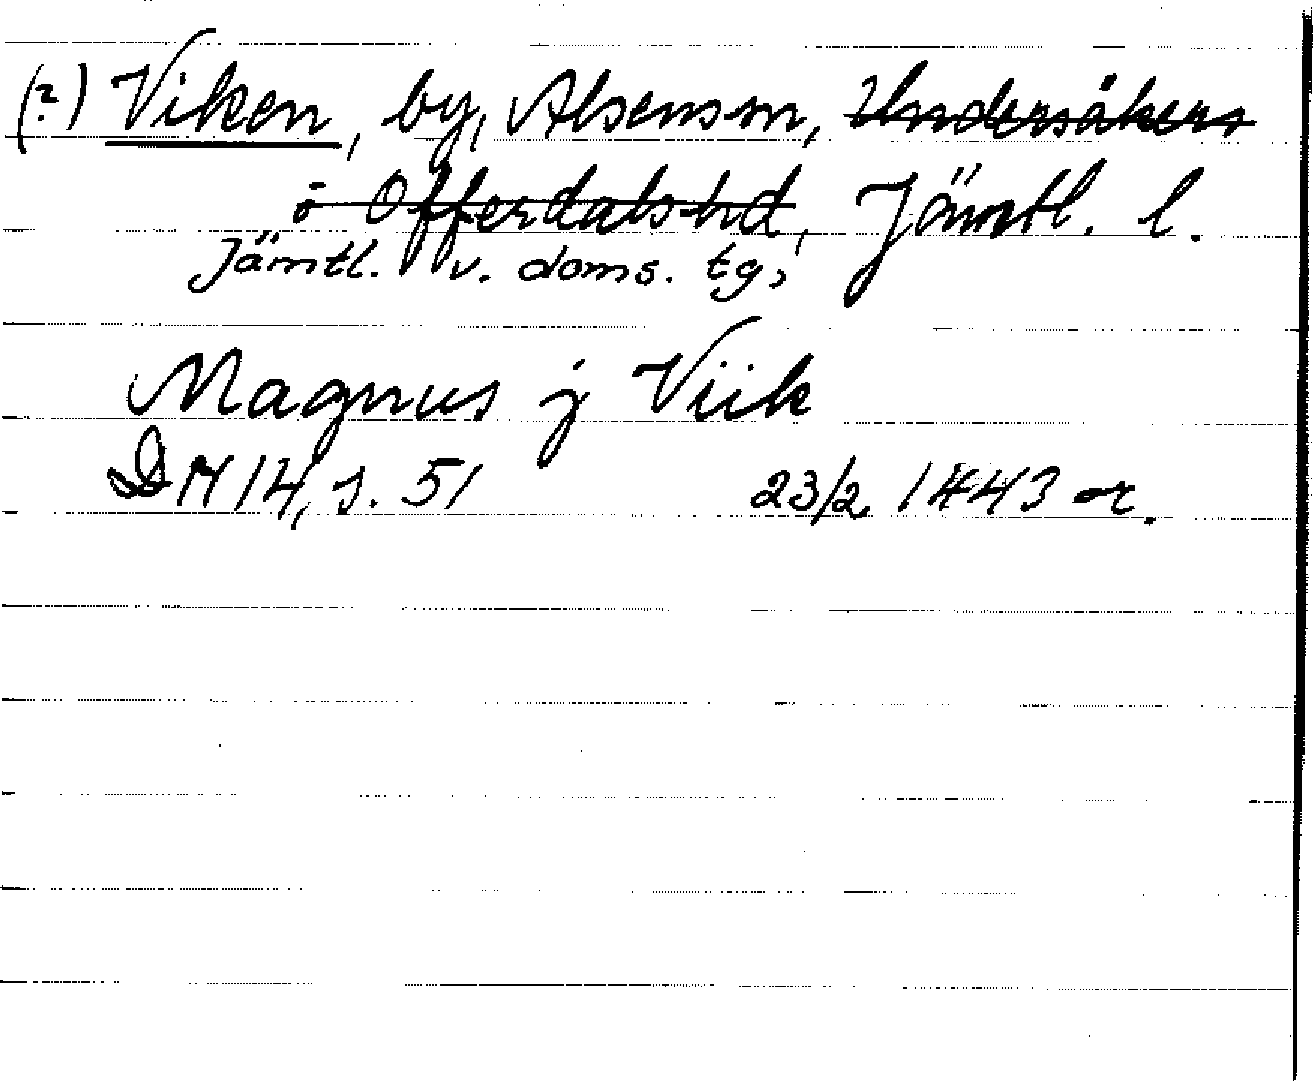 (?) Viken, by, Alsensn, Undersåkers
o Offerdals hd, Jämtl. l.
Jämtl. v. doms. tg,
Magnus j Viik
DN 14, s. 51 23/2 1443 or.